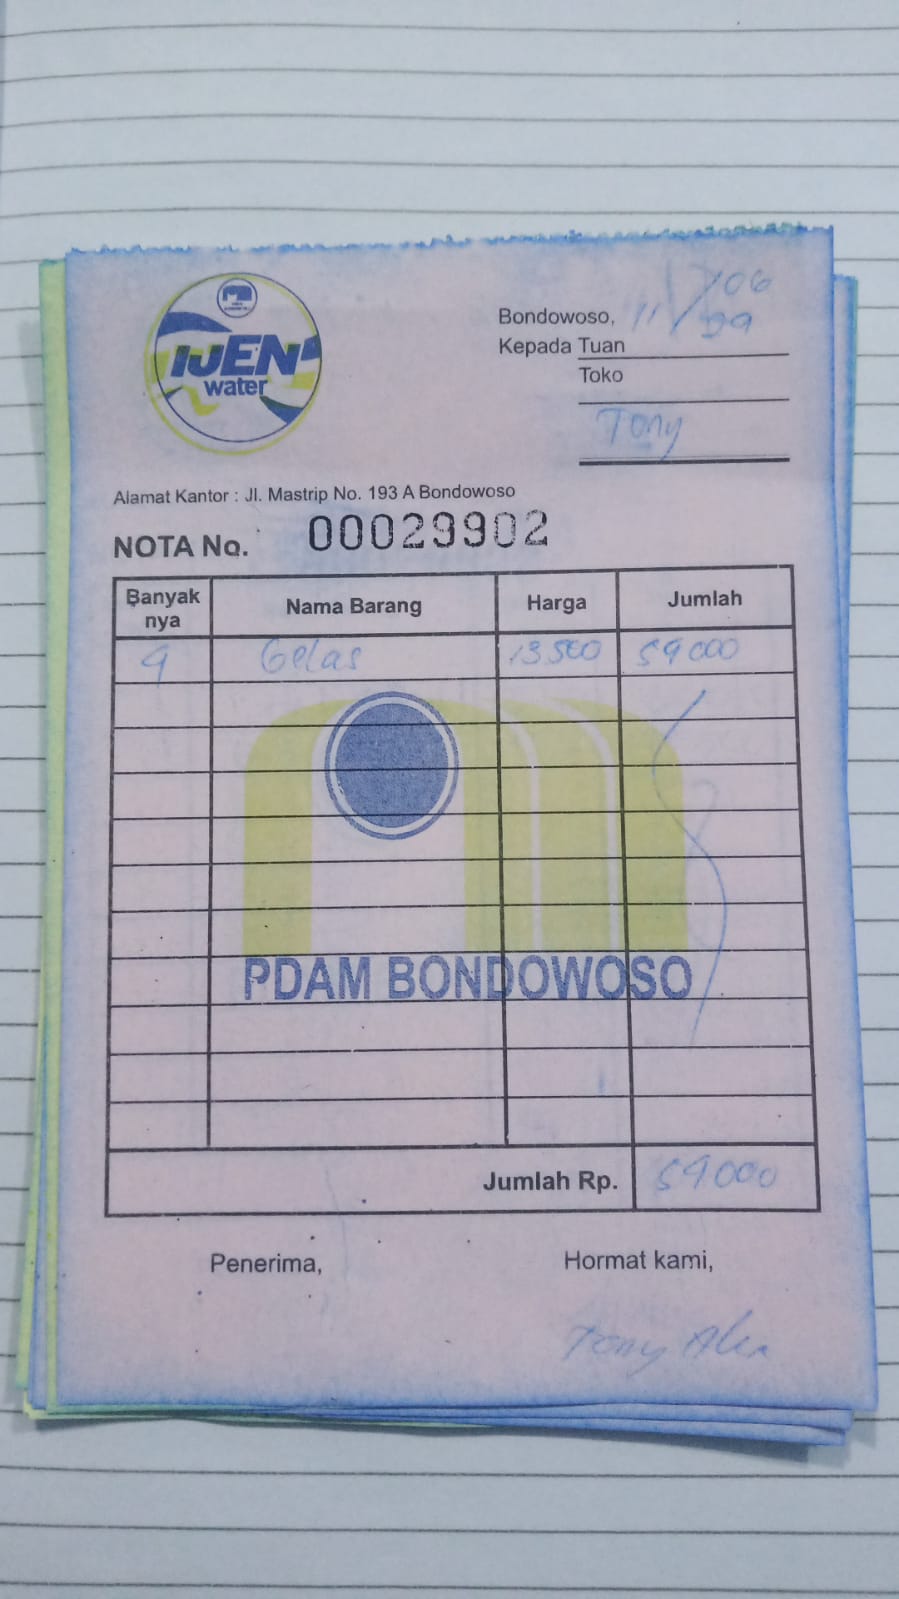 IJEN
water
Bondowoso, 11/06
Kepada Tuan
Toko
Tony
Alamat Kantor : Jl. Mastrip No. 193 A Bondowoso
NOTA No. 00029902
Banyak nya Nama Barang Harga Jumlah
4 Gelas 13500 54000
PDAM BONDOWOSO
Jumlah Rp. 54000
Penerima, Hormat kami,
Tony